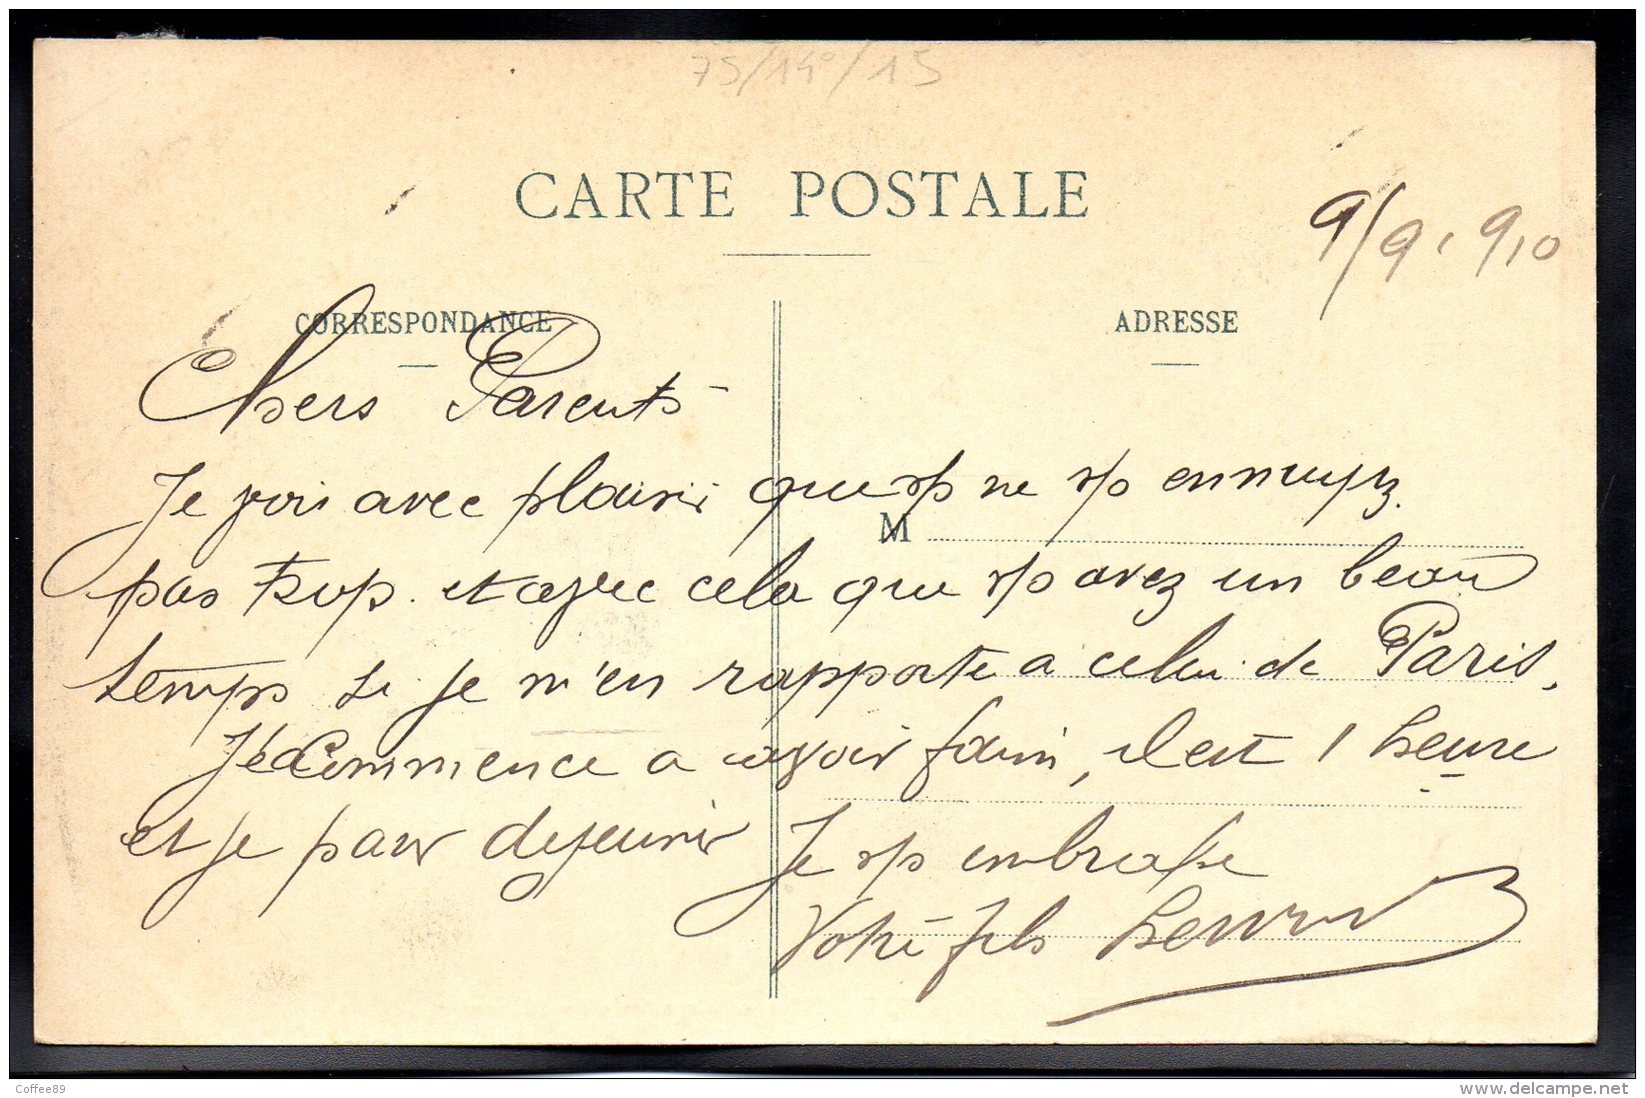 75/14°/15
CARTE POSTALE
9/9, 910
CORRESPONDANCE
ADRESSE
Chers Parents
Je vois avec plaisir que vs ne vs ennuyez
M
pas trop. et avec cela que vs avez un beau
temps si je m'en rapporte a celui de Paris,
Je commence a avoir faim, il est 1 heure
et je pars dejeuner Je vs embrasse
Votre fils Henri
Coffee89
www.delcampe.net